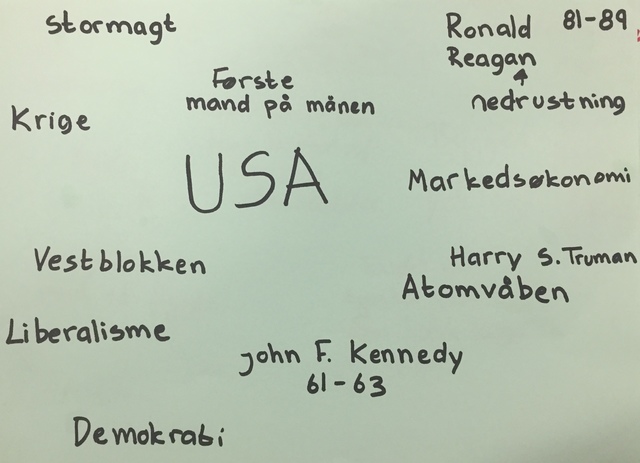 Stormagt
Ronald 81-89
Reagan
Første
mand på månen
nedrustning
Krige
USA
Markedsøkonomi
Vestblokken
Harry S. Truman
Atomvåben
Liberalisme
John F. Kennedy
61-63
Demokrati